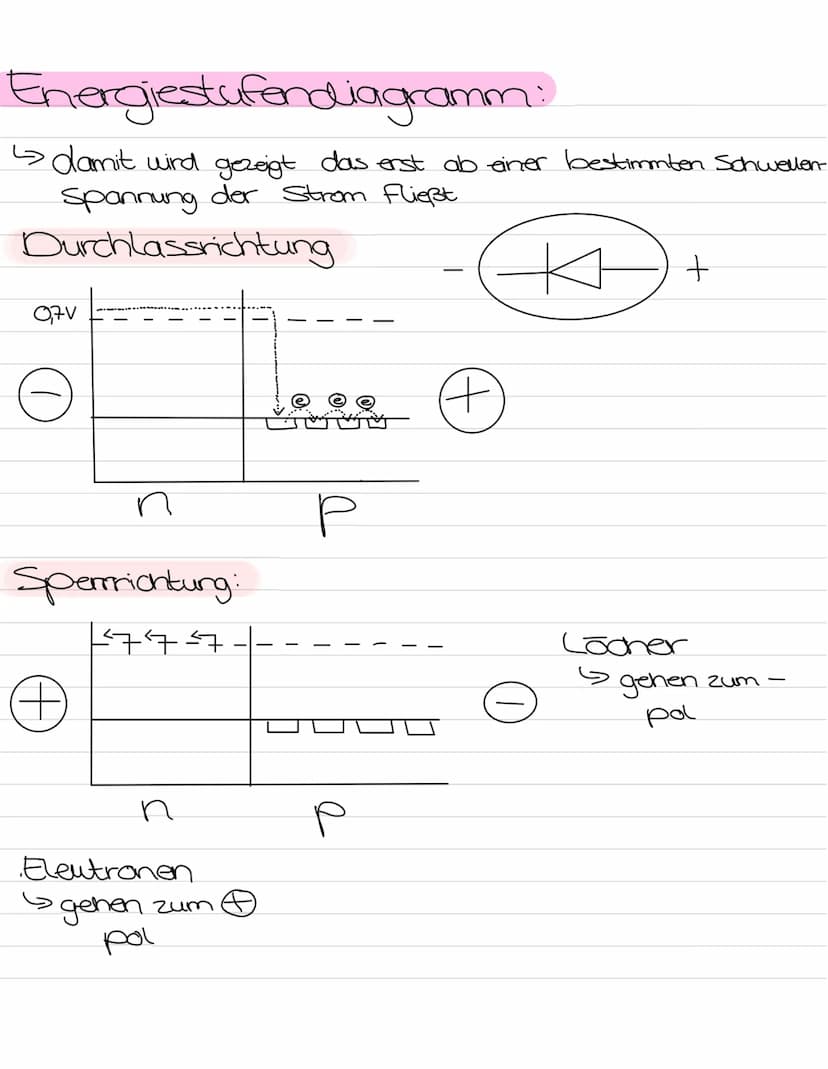 Energiestufendiagramm:
↳ damit wird gezeigt das erst ab einer bestimmten Schwellen-
spannung der Strom fließt
Durchlassrichtung
- +
0,7V
e e e
- +
n p
Sperrrichtung:
Löcher
↳ gehen zum -
pol
+ -
n p
Elektronen
↳ gehen zum +
pol